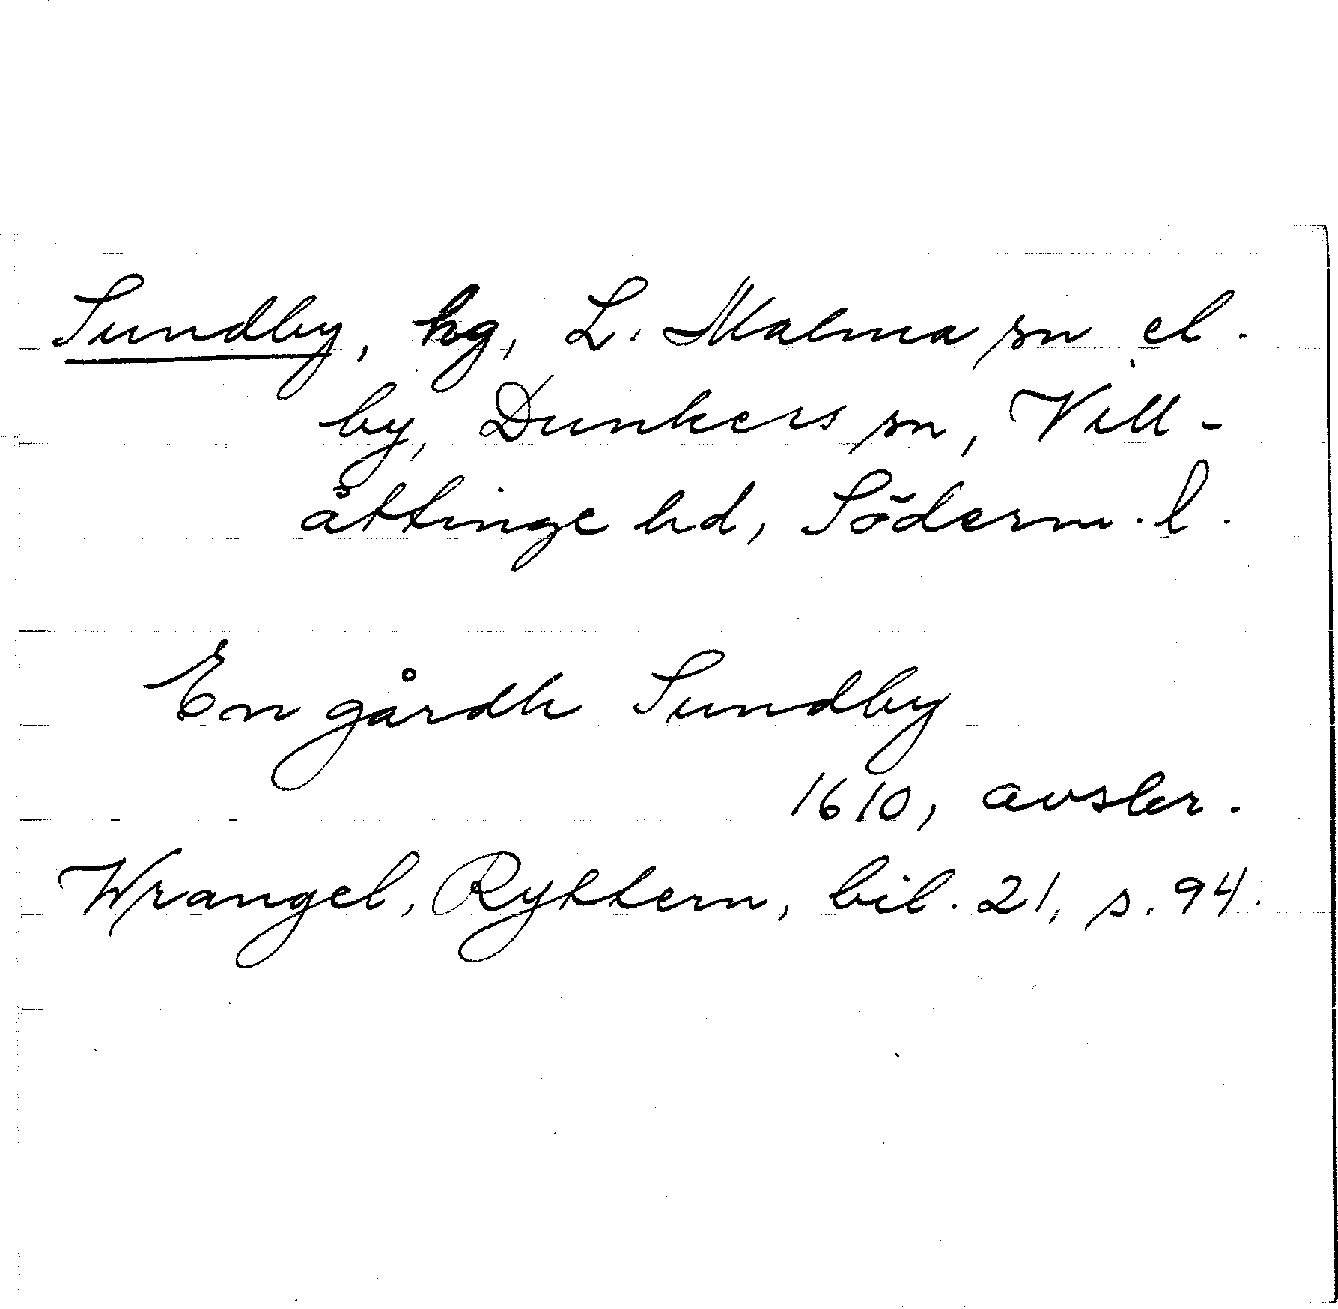 Sundby, hg, L. Malma sn el.
by, Dunkers sn, Vill-
åttinge hd, Söderm. l.
En gårdh Sundby
1610, avskr.
Wrangel, Ryttern, bil. 21, s. 94.